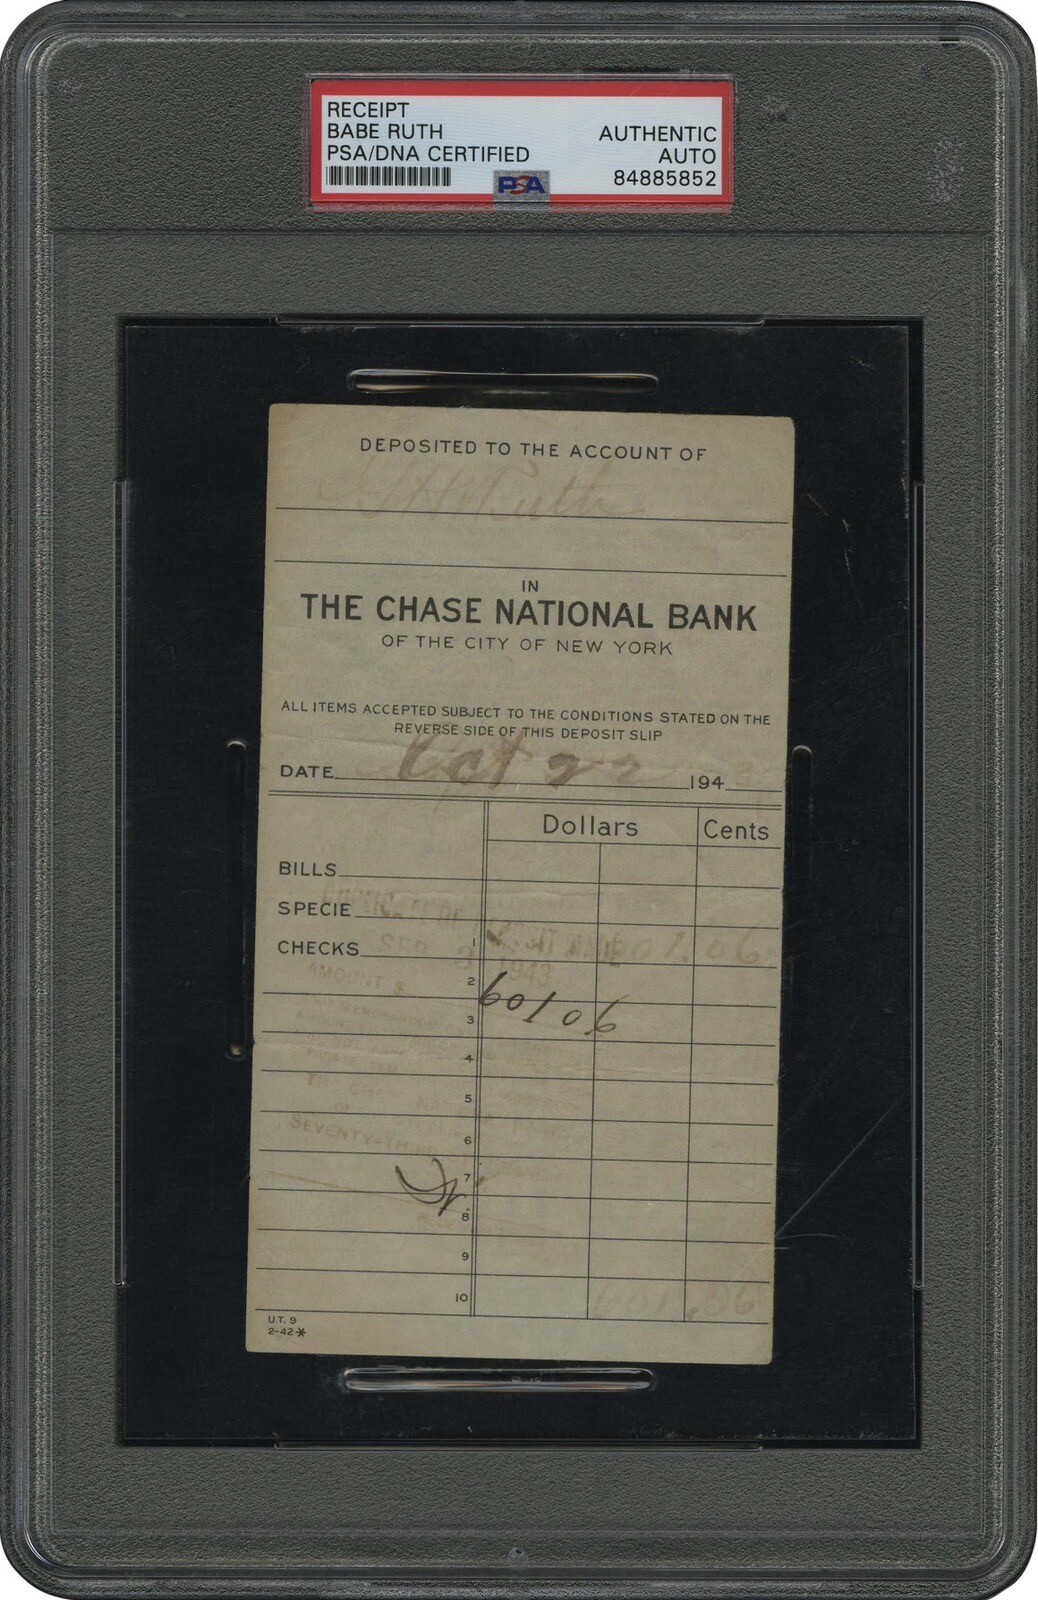 RECEIPT
BABE RUTH
PSA/DNA CERTIFIED
AUTHENTIC
AUTO
84885852
PSA
DEPOSITED TO THE ACCOUNT OF
Ruth
IN
THE CHASE NATIONAL BANK
OF THE CITY OF NEW YORK
ALL ITEMS ACCEPTED SUBJECT TO THE CONDITIONS STATED ON THE
REVERSE SIDE OF THIS DEPOSIT SLIP
DATE Oct 22 194 3
Dollars Cents
BILLS
SPECIE
CHECKS 1 601.06
SEP 1943
AMOUNT $
2
601 06
3
4
5
THE CHASE
6
SEVENTY-THIRD
7
8
9
10 601.06
U.T. 9
2-42*